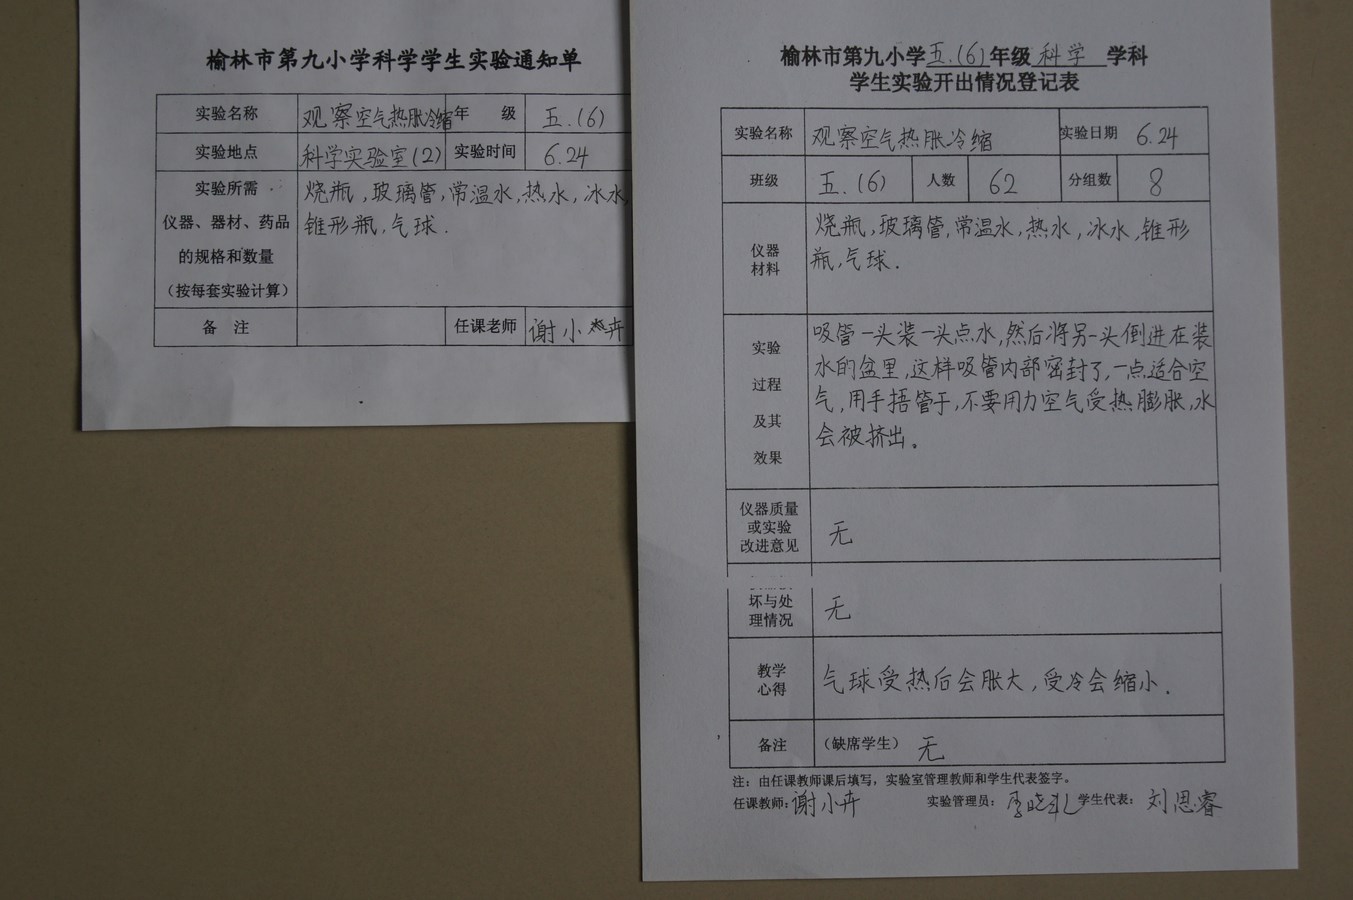 榆林市第九小学科学学生实验通知单
实验名称 观察空气热胀冷缩 年 级 五.(6)
实验地点 科学实验室(2) 实验时间 6.24
实验所需
仪器、器材、药品
的规格和数量
（按每套实验计算）
烧瓶,玻璃管,常温水,热水,冰水,
锥形瓶,气球.
备 注 任课老师 谢小卉
榆林市第九小学五.(6)年级科学 学科
学生实验开出情况登记表
实验名称 观察空气热胀冷缩 实验日期 6.24
班级 五.(6) 人数 62 分组数 8
仪器
材料
烧瓶,玻璃管,常温水,热水,冰水,锥形
瓶,气球.
实验
过程
及其
效果
吸管一头装一头点水,然后将另一头倒进在装
水的盆里,这样吸管内部密封了,一点适合空
气,用手捂管于,不要用力空气受热膨胀,水
会被挤出。
仪器质量
或实验
改进意见
无
坏与处
理情况
无
教学
心得
气球受热后会胀大,受冷会缩小.
备注 （缺席学生） 无
注：由任课教师课后填写，实验室管理教师和学生代表签字。
任课教师：谢小卉 实验管理员： 学生代表：刘思睿